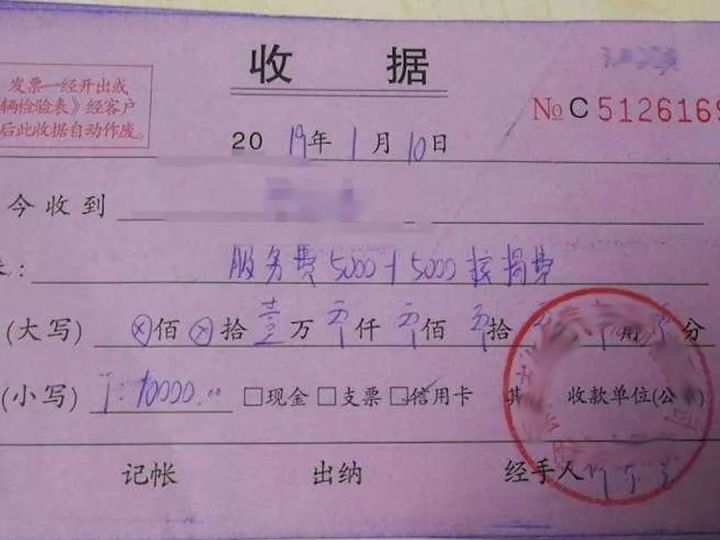 收 据
发票一经开出或
辆检验表》经客户
后此收据自动作废。
No C 5126169
2019年1月10日
今收到
服务费5000+5000按揭费
(大写) ⊗佰⊗拾壹万零仟零佰零拾零元零角零分
(小写) ¥:10000.00 □现金□支票☑信用卡 其 收款单位(公
记帐 出纳 经手人